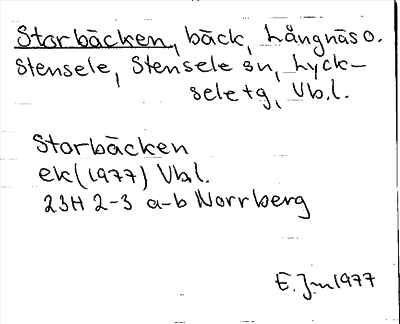 Storbäcken, bäck, Långnäs o.
Stensele, Stensele sn, Lyck-
sele tg, Vb.l.
Storbäcken
ek (1977) Vbl.
23H 2-3 a-b Norrberg
E. 1977